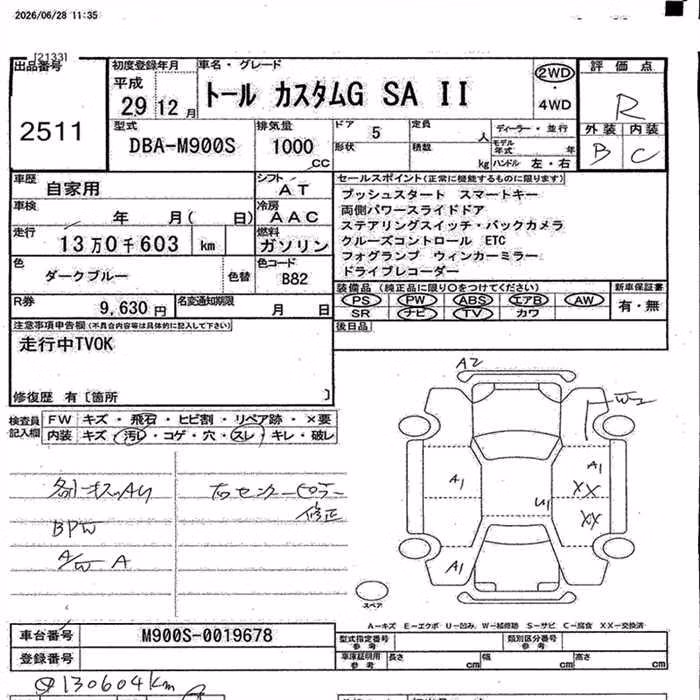 2026/06/28 11:35
[2133]
出品番号
2511
初度登録年月
平成
29 12 月
車名・グレード
トール カスタムG SA II
2WD
・
4WD
評価点
R
外装 内装
B C
型式
DBA-M900S
排気量
1000
CC
ドア 5
形状
定員 人
積載 kg
ディーラー・並行
モデル年式 年
ハンドル 左・右
車歴
自家用
シフト
AT
車検
年 月( 日)
冷房
AAC
走行
13万0千603 km
燃料
ガソリン
色
ダークブルー
色替
色コード
B82
R券
9,630 円
名変通知期限
月 日
セールスポイント(正常に機能するものに限ります)
プッシュスタート スマートキー
両側パワースライドドア
ステアリングスイッチ・バックカメラ
クルーズコントロール ETC
フォグランプ ウィンカーミラー
ドライブレコーダー
装備品(純正品に限り○をつけてください)
PS PW ABS エアB AW
SR ナビ TV カワ
新車保証書
有・無
後日品
注意事項申告欄(不具合内容等は具体的に記入して下さい)
走行中TVOK
修復歴 有〔箇所 〕
検査員
記入欄
FW キズ・飛石・ヒビ割・リペア跡・×要
内装 キズ・汚レ・コゲ・穴・スレ・キレ・破レ
BPW
A/W A
右センターピラー
修正
A2
W2
A1
A1
XX
U1
XX
A1
スペア
A-キズ E-エクボ U-凹み W-補修跡 S-サビ C-腐食 XX-交換済
車台番号
M900S-0019678
登録番号
型式指定番号
参考
類別区分番号
参考
車庫証明用
参考
長さ cm
幅 cm
高さ cm
130604km